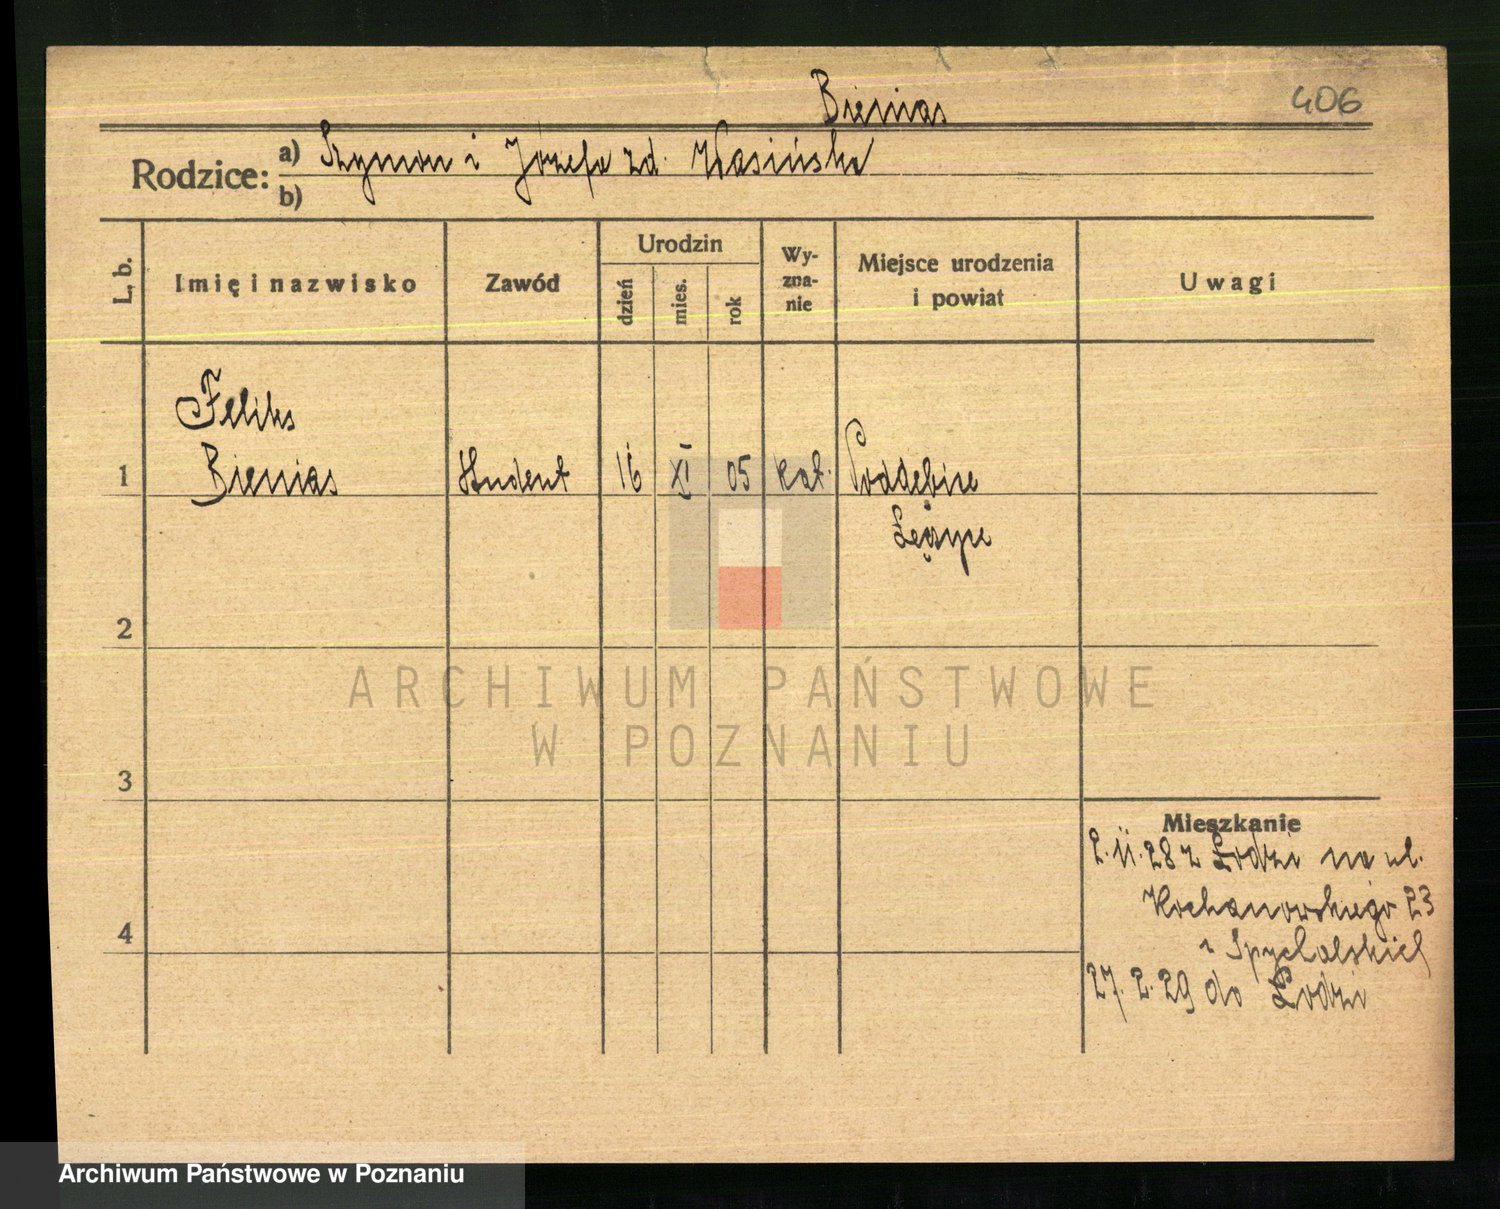 Bienias
406
Rodzice:
a) Szymon i Józefa zd. Wasińska
b)
L. b.
Imię i nazwisko
Zawód
Urodzin
dzień
mies.
rok
Wy-
zna-
nie
Miejsce urodzenia
i powiat
Uwagi
Feliks
1 Bienias student 16 XI 05 kat. Poddębice
Łęczyca
2
3
4
Mieszkanie
2.11.28 z Łodzi na ul.
Kochanowskiego 23
Spychalskich
27.2.29 do Łodzi
ARCHIWUM PAŃSTWOWE
W POZNANIU
Archiwum Państwowe w Poznaniu